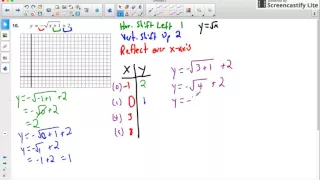 RECORDED WITH
Screencastify Lite
16. y = -√(x+1) + 2
Hor. Shift Left 1 y=√x
Vert. Shift Up 2
Reflect over x-axis
X Y
(0) -1 2
(1) 0 1
(4) 3
(9) 8
y=-√(-1+1) +2
=-√0 +2
=2
y=-√(0+1) +2
y=-√1 +2
=-1+2 =1
y=-√(3+1) +2
y=-√4 +2
y=-